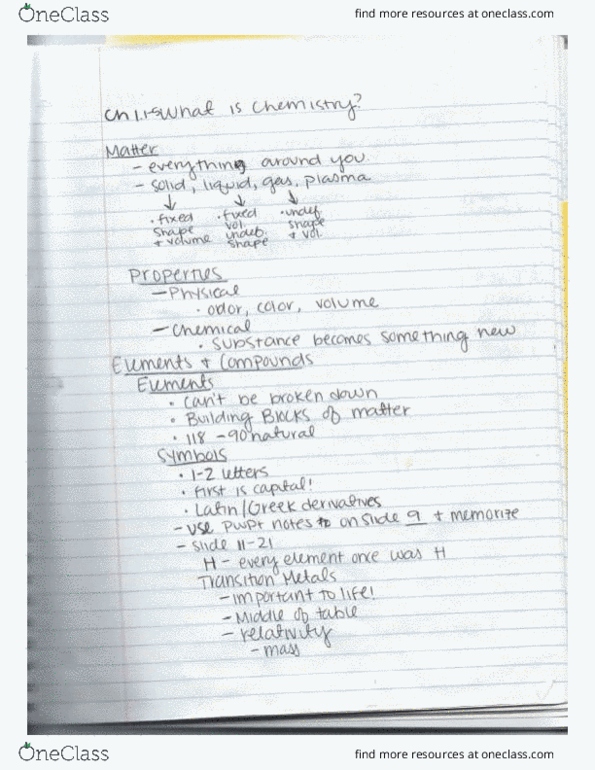 OneClass
find more resources at oneclass.com
Ch 1.1 What is Chemistry?
Matter
- everything around you.
- solid, liquid, gas, plasma
↓ ↓ ↓
· fixed shape + volume
· fixed vol. undef. shape
· undef. shape + vol.
Properties
- Physical
· odor, color, volume
- Chemical
· substance becomes something new
Elements + Compounds
Elements
· can't be broken down
· Building Blocks of matter
· 118 - 90 natural
Symbols
· 1-2 letters
· First is capital!
· Latin/Greek derivatives
- use PWPt notes on slide 9 + memorize
- slide 11-21
H - every element once was H
Transition Metals
- important to life!
- Middle of table
- relativity
- mass
OneClass
find more resources at oneclass.com